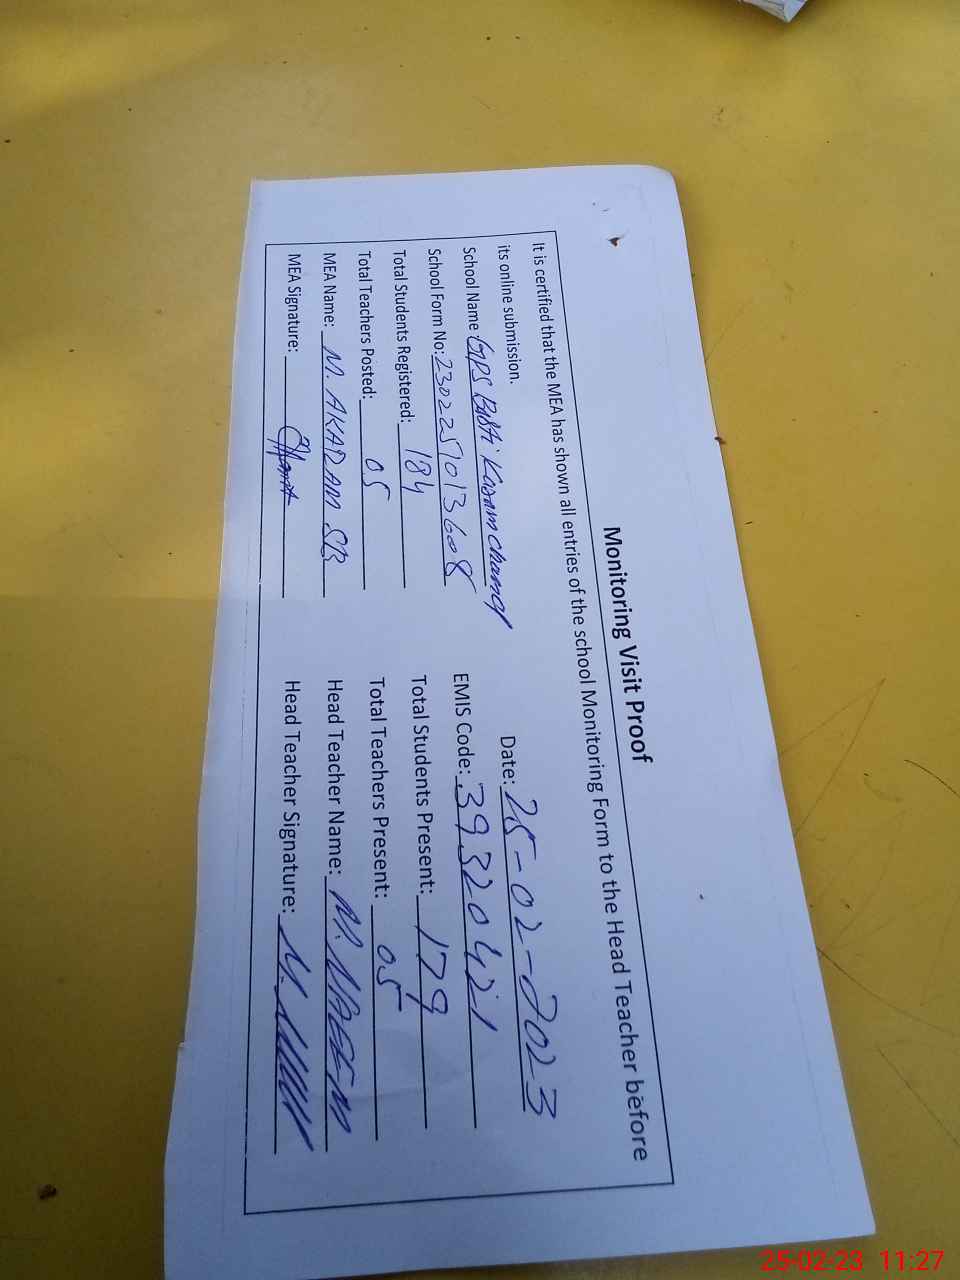 Monitoring Visit Proof
It is certified that the MEA has shown all entries of the school Monitoring Form to the Head Teacher before
its online submission.
Date: 25-02-2023
School Name: GPS Basti Karam chand
EMIS Code: 39320421
School Form No: 2302257013608
Total Students Present: 179
Total Students Registered: 184
Total Teachers Present: 05
Total Teachers Posted: 05
Head Teacher Name: M. NAEEM
MEA Name: M. AKARAM SB
Head Teacher Signature: M.
MEA Signature:
25-02-23 11:27